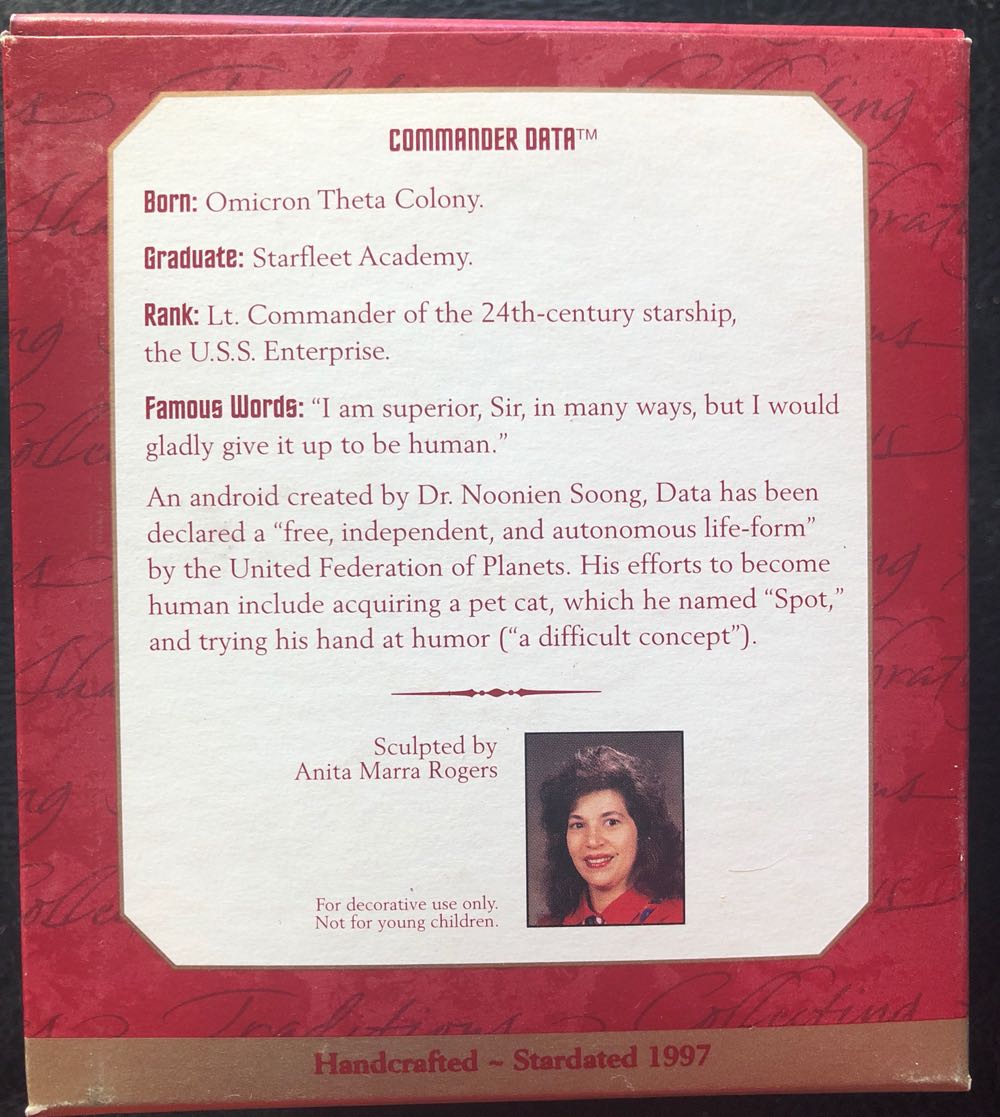 COMMANDER DATA™
Born: Omicron Theta Colony.
Graduate: Starfleet Academy.
Rank: Lt. Commander of the 24th-century starship,
the U.S.S. Enterprise.
Famous Words: “I am superior, Sir, in many ways, but I would
gladly give it up to be human.”
An android created by Dr. Noonien Soong, Data has been
declared a “free, independent, and autonomous life-form”
by the United Federation of Planets. His efforts to become
human include acquiring a pet cat, which he named “Spot,”
and trying his hand at humor (“a difficult concept”).
Sculpted by
Anita Marra Rogers
For decorative use only.
Not for young children.
Traditions Collecting
Handcrafted ~ Stardated 1997